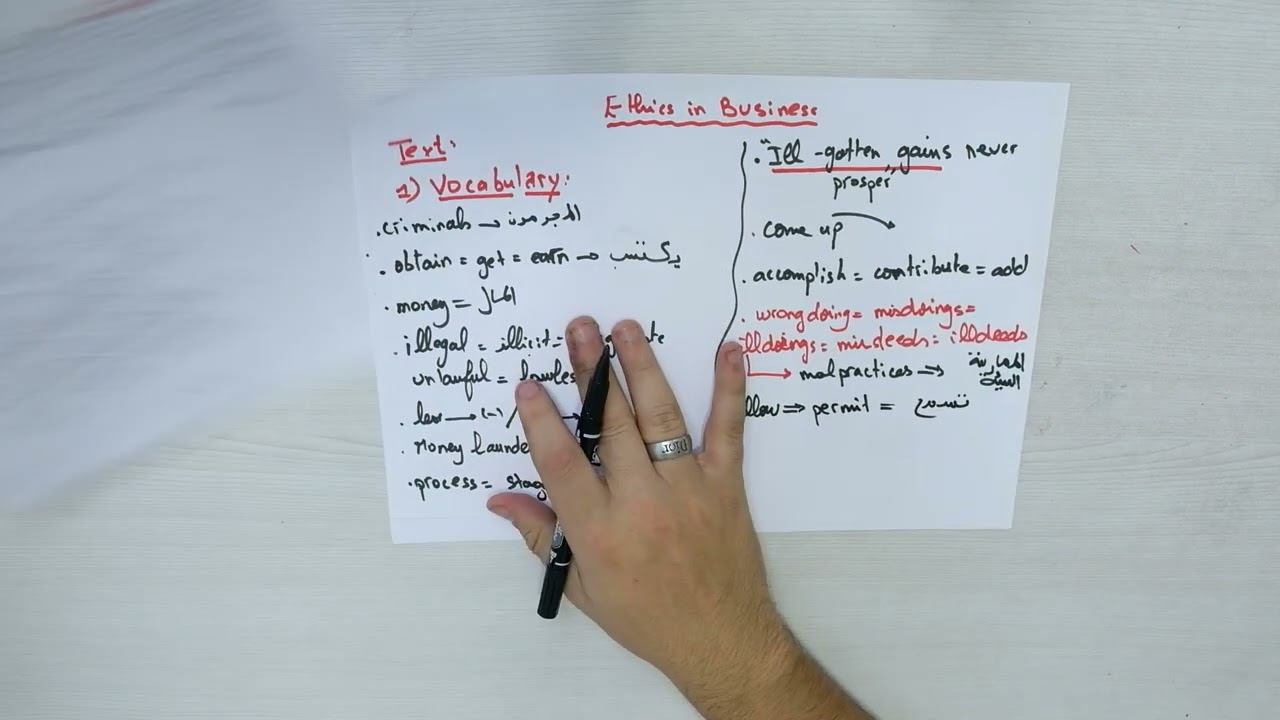 Ethics in Business
Text:
1) Vocabulary:
.criminals → المجرمون
.obtain = get = earn → يكتسب
.money = المال
.illegal = illicit =
unlawful =
.
.Money launde
.process = stag
."Ill-gotten gains never
prosper"
.come up
.accomplish = contribute = add
.wrongdoing = misdoings =
illdoings = misdeeds = illdeeds
→ malpractices ⇒ الممارسة
السيئة
llow ⇒ permit = تسمح
Dior